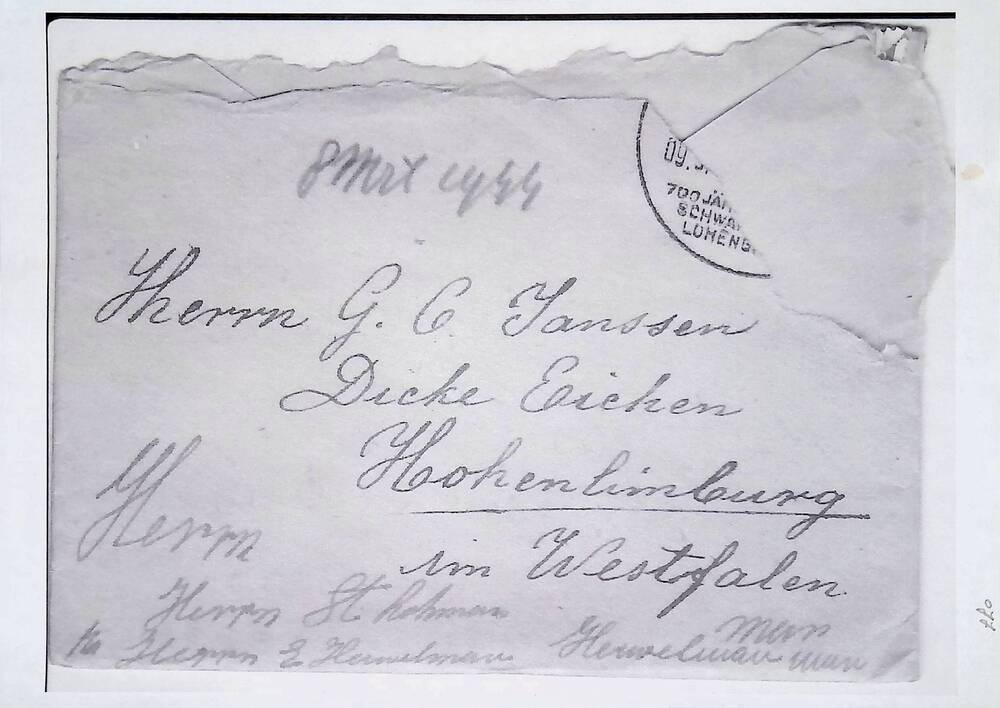 8 Mrt 1944
09.
700 JAH
SCHWA
LOMENS
Herrn G. C. Janssen
Dicke Eichen
Hohenlimburg
im Westfalen
Herrn
Herrn St Lohman
Herrn E Heuvelman
Heuvelman
man
man